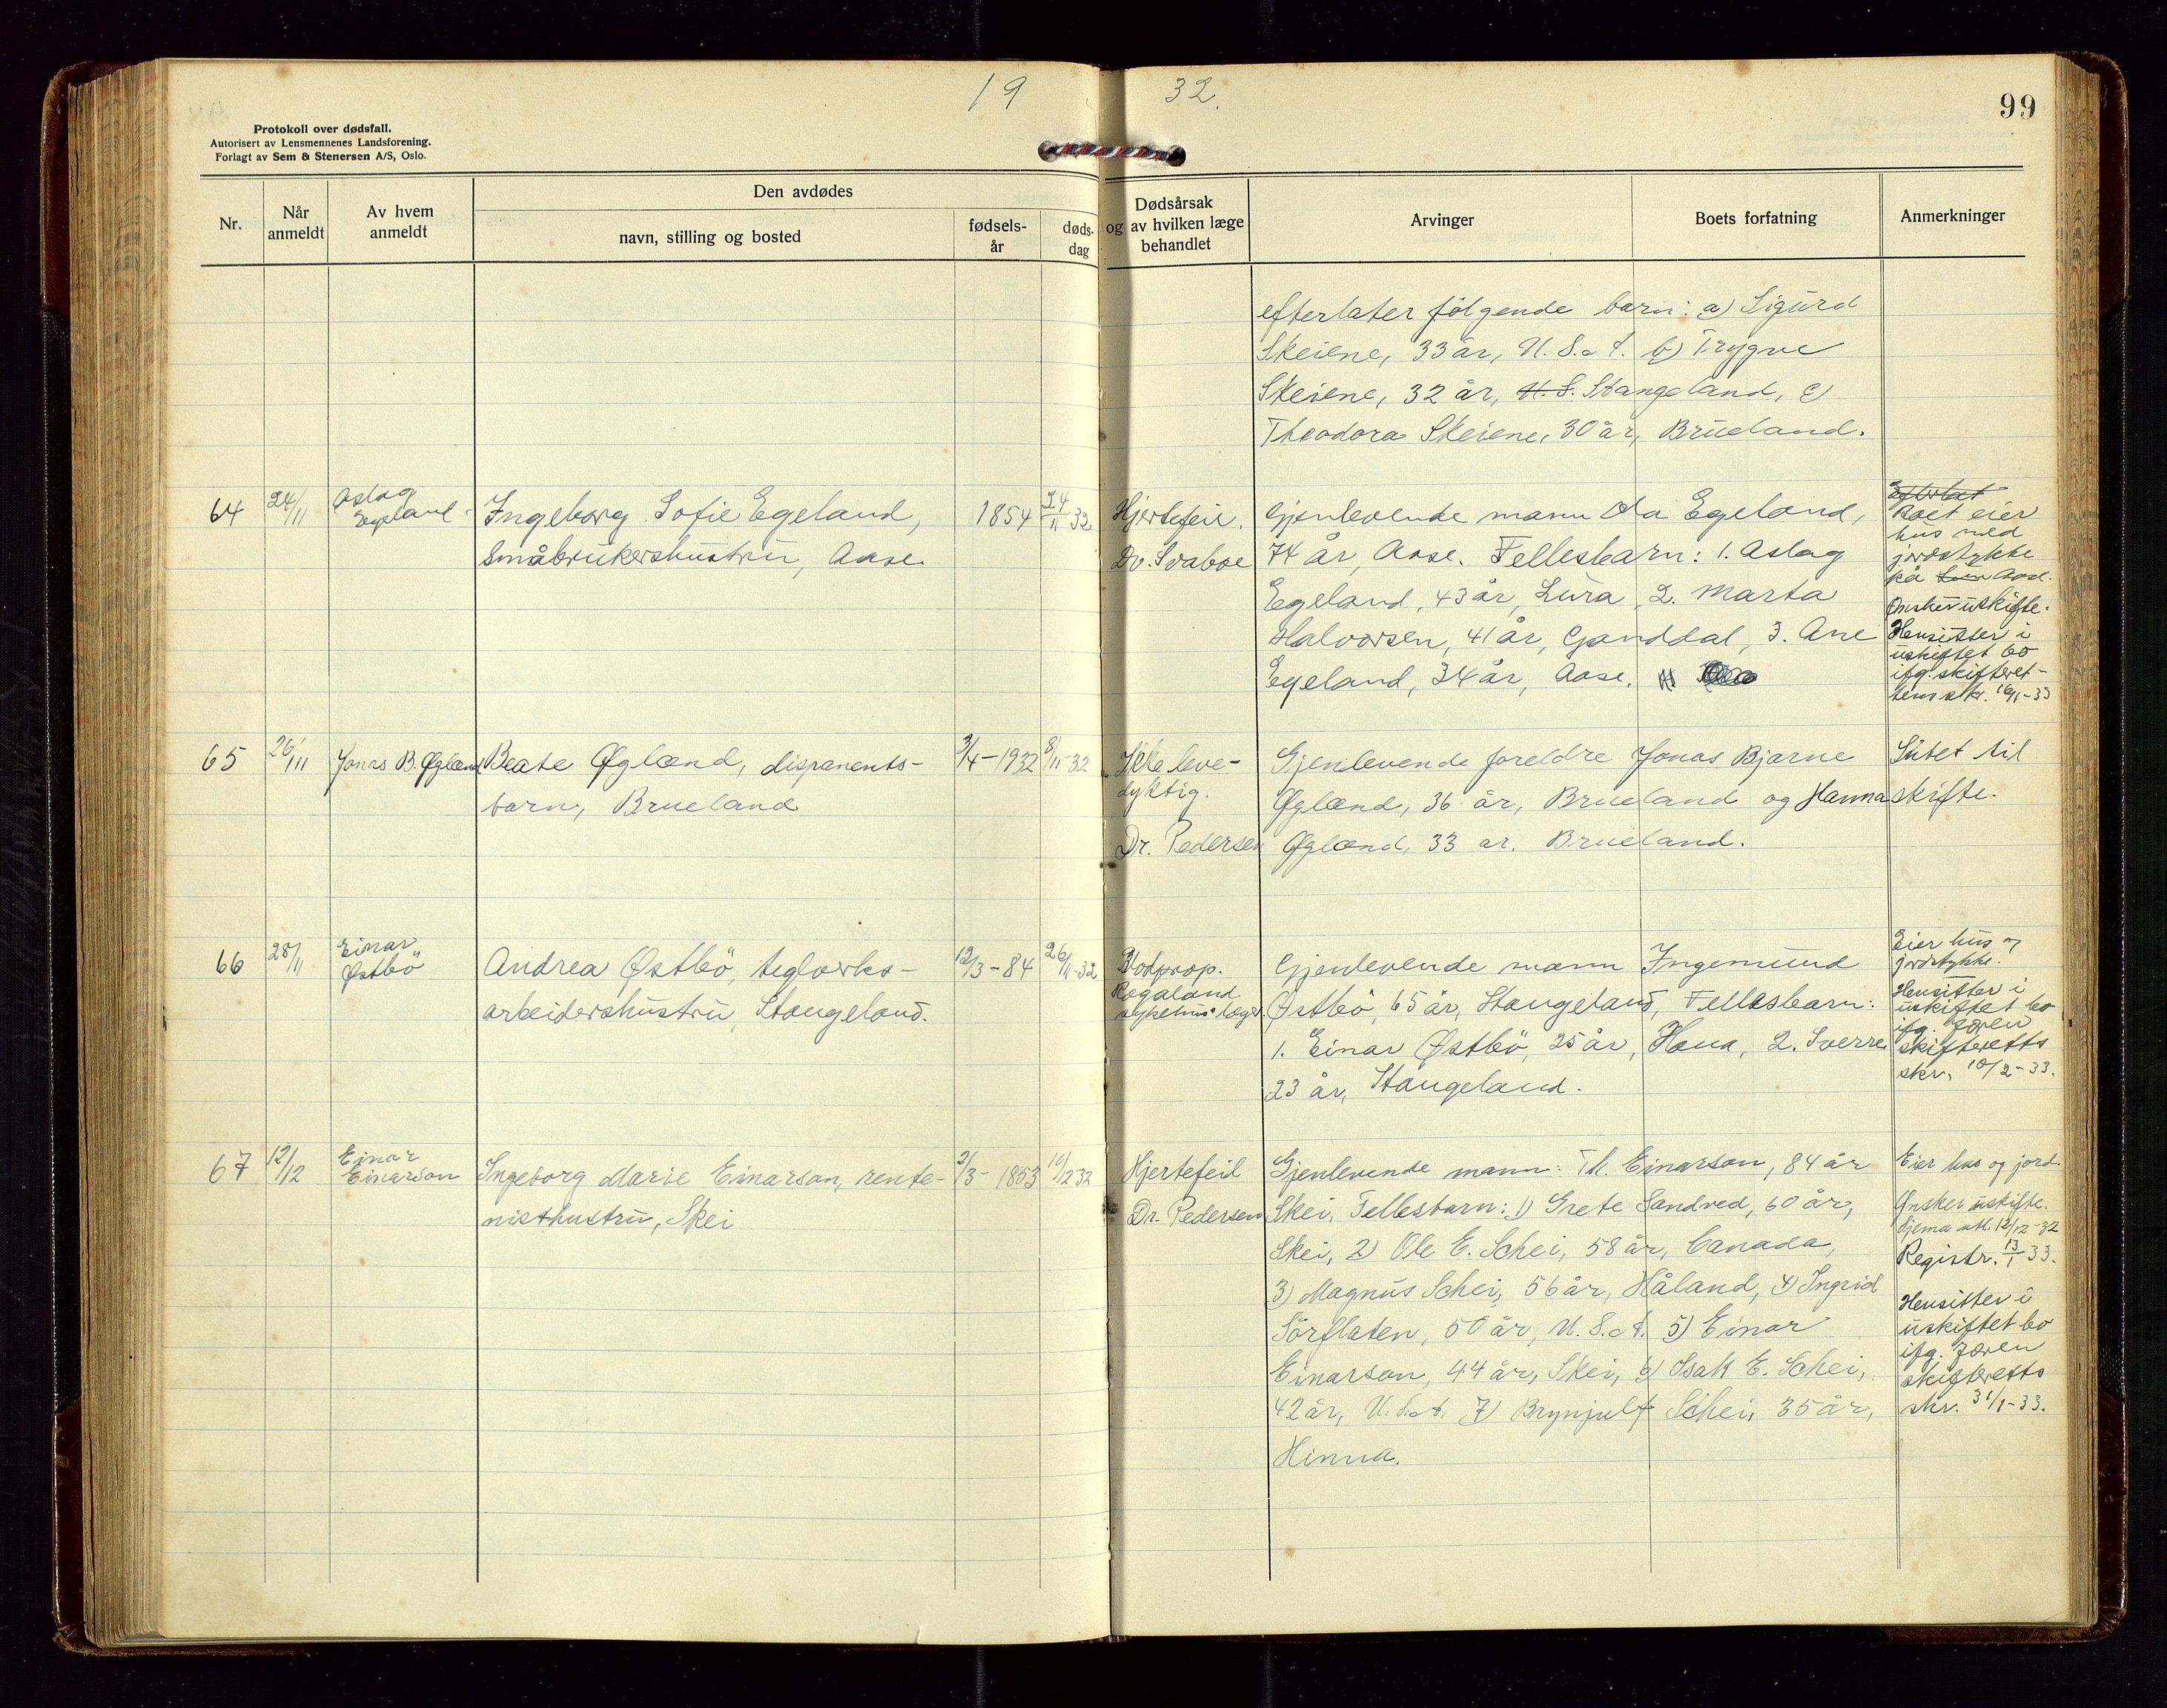 19 32.
99
Protokoll over dødsfall.
Autorisert av Lensmennenes Landsforening.
Forlagt av Sem & Stenersen A/S, Oslo.
Nr.
Når anmeldt
Av hvem anmeldt
Den avdødes
navn, stilling og bosted
fødsels-
år
døds-
dag
Dødsårsak
og av hvilken læge
behandlet
Arvinger
Boets forfatning
Anmerkninger
efterlater følgende barn: a) Sigurd
Skeiene, 33 år, U.S.a.t. b) Trygve
Skeiene, 32 år, U.S. Stangeland, c)
Theodora Skeiene, 30 år, Brueland.
64
24/11
Aslag
Egeland
Ingeborg Sofie Egeland,
småbrukershustru, Aase.
1854
24/11 32
Hjertefeil.
Dr. Svaboe
Gjenlevende mann Ola Egeland,
74 år, Aase. Fellesbarn: 1. Aslag
Egeland, 43 år, Lura, 2. Marta
Halvorsen, 41 år, Ganddal, 3. Ane
Egeland, 34 år, Aase.
Efterlat
Boet eier
hus med
jordstykke
på Aase.
Ønsker uskifte.
Hensitter i
uskiftet bo
ifg. skifteret-
tens skr. 16/1-33
65
26/11
Jonas B. Øglænd
Beate Øglænd, disponents-
barn, Brueland
3/4-1932
8/11-32
Ikke leve-
dyktig.
Dr. Pedersen
Gjenlevende foreldre Jonas Bjarne
Øglænd, 36 år, Brueland og Hanna
Øglænd, 33 år. Brueland.
Intet til
skifte.
66
28/11
Einar
Østbö
Andrea Østbö, teglverks-
arbeidershustru, Stangeland.
12/3-84
26/11-32
Blodprop.
Rogaland
sykehus' læger
Gjenlevende mann Ingemund
Østbö, 65 år, Stangeland, Fellesbarn:
1. Einar Østbö, 25 år, Hana, 2. Sverre
23 år, Stangeland.
Eier hus og
jordstykke.
Hensitter i
uskiftet bo
ifg. Jæren
skifteretts
skr. 10/2-33.
67
12/12
Einar
Einarson
Ingeborg Marie Einarson, rente-
nisthustru, Skei
2/3-1853
10/12 32
Hjertefeil
Dr. Pedersen
Gjenlevende mann: Th. Einarson, 84 år
Skei, Fellesbarn: 1) Grete Sandved, 60 år,
Skei, 2) Ole E. Schei, 58 år, Canada,
3) Magnus Schei, 56 år, Håland, 4) Ingrid
Sörflaten, 50 år, U.S.a.t. 5) Einar
Einarson, 44 år, Skei, 6) Isak E. Schei,
42 år, U.S.a.t. 7) Brynjulf Schei, 35 år,
Hinna.
Eier hus og jord.
Ønsker uskifte.
Skjema utl. 12/12-32
Registr. 13/1 33.
Hensitter i
uskiftet bo
ifg. Jæren
skifteretts
skr. 31/1-33.